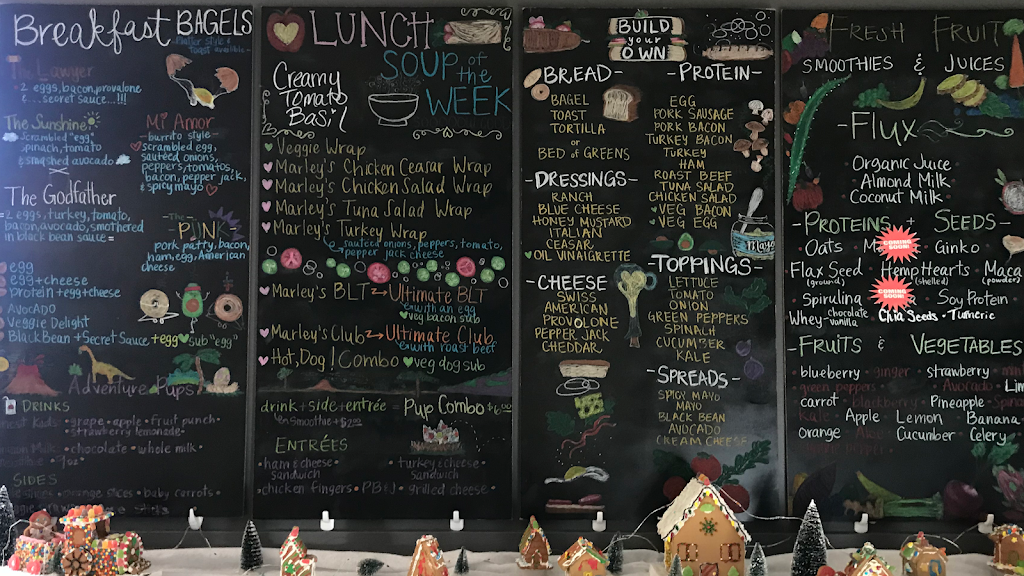 Breakfast BAGELS
The Lawyer
2 eggs, bacon, provalone
& ...secret sauce...!!!
The Sunshine
scrambled egg
spinach, tomato
& smashed avocado
Mi Amor
- burrito style -
scrambled egg,
sautéed onions,
peppers, tomatos,
bacon, pepper jack,
& spicy mayo
The Godfather
- 2 eggs, turkey, tomato,
bacon, avocado, smothered
in black bean sauce =
- The -
PUNK
pork patty, bacon,
ham, egg, American
cheese
egg
egg + cheese
protein + egg + cheese
Avocado
Veggie Delight
Black Bean + Secret Sauce + egg sub "egg"
Adventure Pups
DRINKS
grape • apple • Fruit punch •
strawberry lemonade •
chocolate • whole milk •
SIDES
orange slices • baby carrots •
LUNCH
SOUP of the
WEEK
Creamy
Tomato
Basil
Veggie Wrap
Marley's Chicken Ceasar Wrap
Marley's Chicken Salad Wrap
Marley's Tuna Salad Wrap
Marley's Turkey Wrap
sautéed onions, peppers, tomato,
pepper jack cheese
Marley's BLT Ultimate BLT
with an egg
veg bacon sub
Marley's Club Ultimate Club
with roast beef
Hot, Dog! Combo veg dog sub
drink + side + entrée = Pup Combo
ENTRÉES
ham & cheese
sandwich
• turkey & cheese
sandwich
• chicken fingers • PB + J • grilled cheese •
BUILD
your
OWN
- BREAD -
BAGEL
TOAST
TORTILLA
or
BED of GREENS
- DRESSINGS -
RANCH
BLUE CHEESE
HONEY MUSTARD
ITALIAN
CEASAR
OIL VINAIGRETTE
- CHEESE -
SWISS
AMERICAN
PROVOLONE
PEPPER JACK
CHEDDAR
- PROTEIN -
EGG
PORK SAUSAGE
PORK BACON
TURKEY BACON
TURKEY
HAM
ROAST BEEF
TUNA SALAD
CHICKEN SALAD
VEG BACON
VEG EGG
Mayo
- TOPPINGS -
LETTUCE
TOMATO
ONION
GREEN PEPPERS
SPINACH
CUCUMBER
KALE
- SPREADS -
SPICY MAYO
MAYO
BLACK BEAN
AVOCADO
CREAM CHEESE
FRESH FRUIT
SMOOTHIES & JUICES
- Flux
Organic Juice
Almond Milk
Coconut Milk
- PROTEINS + SEEDS -
Oats COMING SOON! Ginko
Flax Seed (ground) Hemp Hearts (shelled) Maca (powder)
Spirulina COMING SOON! Soy Protein
Whey - chocolate vanilla Chia Seeds • Tumeric
- FRUITS & VEGETABLES
blueberry ginger strawberry
green peppers Avocado
carrot blackberry Pineapple
Kale Apple Lemon Banana
Orange Cucumber Celery